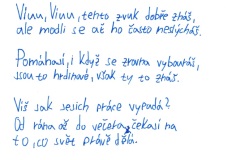 Víuu, Víuu, tento zvuk dobře znáš,
ale modli se ať ho často neslýcháš.
Pomáhají, i když se zrovna vybouráš,
jsou to hrdinové, však ty to znáš.
Víš jak jejich práce vypadá?
Od rána až do večera, čekají na
to, co svět právě dělá.